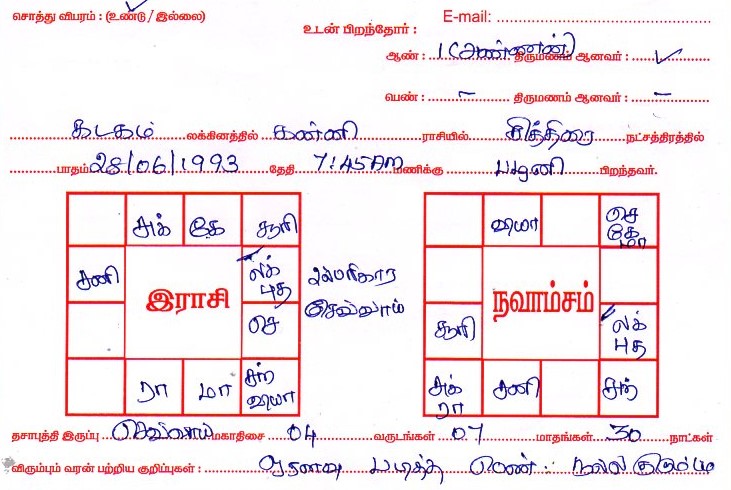 சொத்து விபரம் : (உண்டு / இல்லை)
E-mail:
உடன் பிறந்தோர் :
ஆண் : 1 (அண்ணன்) திருமணம் ஆனவர் : ✓
பெண் : – திருமணம் ஆனவர் : –
கடகம் லக்கினத்தில் கன்னி ராசியில் சித்திரை நட்சத்திரத்தில்
பாதம் 28/06/1993 தேதி 7:45 AM மணிக்கு பழனி பிறந்தவர்.
சுக் கே சூரி
சனி
லக் புத
செ
ரா மா சந் வியா
இராசி
பரிகார
செவ்வாய்
வியா
செ கே மா
சூரி
லக் புத
சுக் ரா சனி சந்
நவாம்சம்
தசாபுத்தி இருப்பு செவ்வாய் மகாதிசை 04 வருடங்கள் 07 மாதங்கள் 30 நாட்கள்
விரும்பும் வரன் பற்றிய குறிப்புகள் : படித்த பெண். நல்ல குடும்பம்